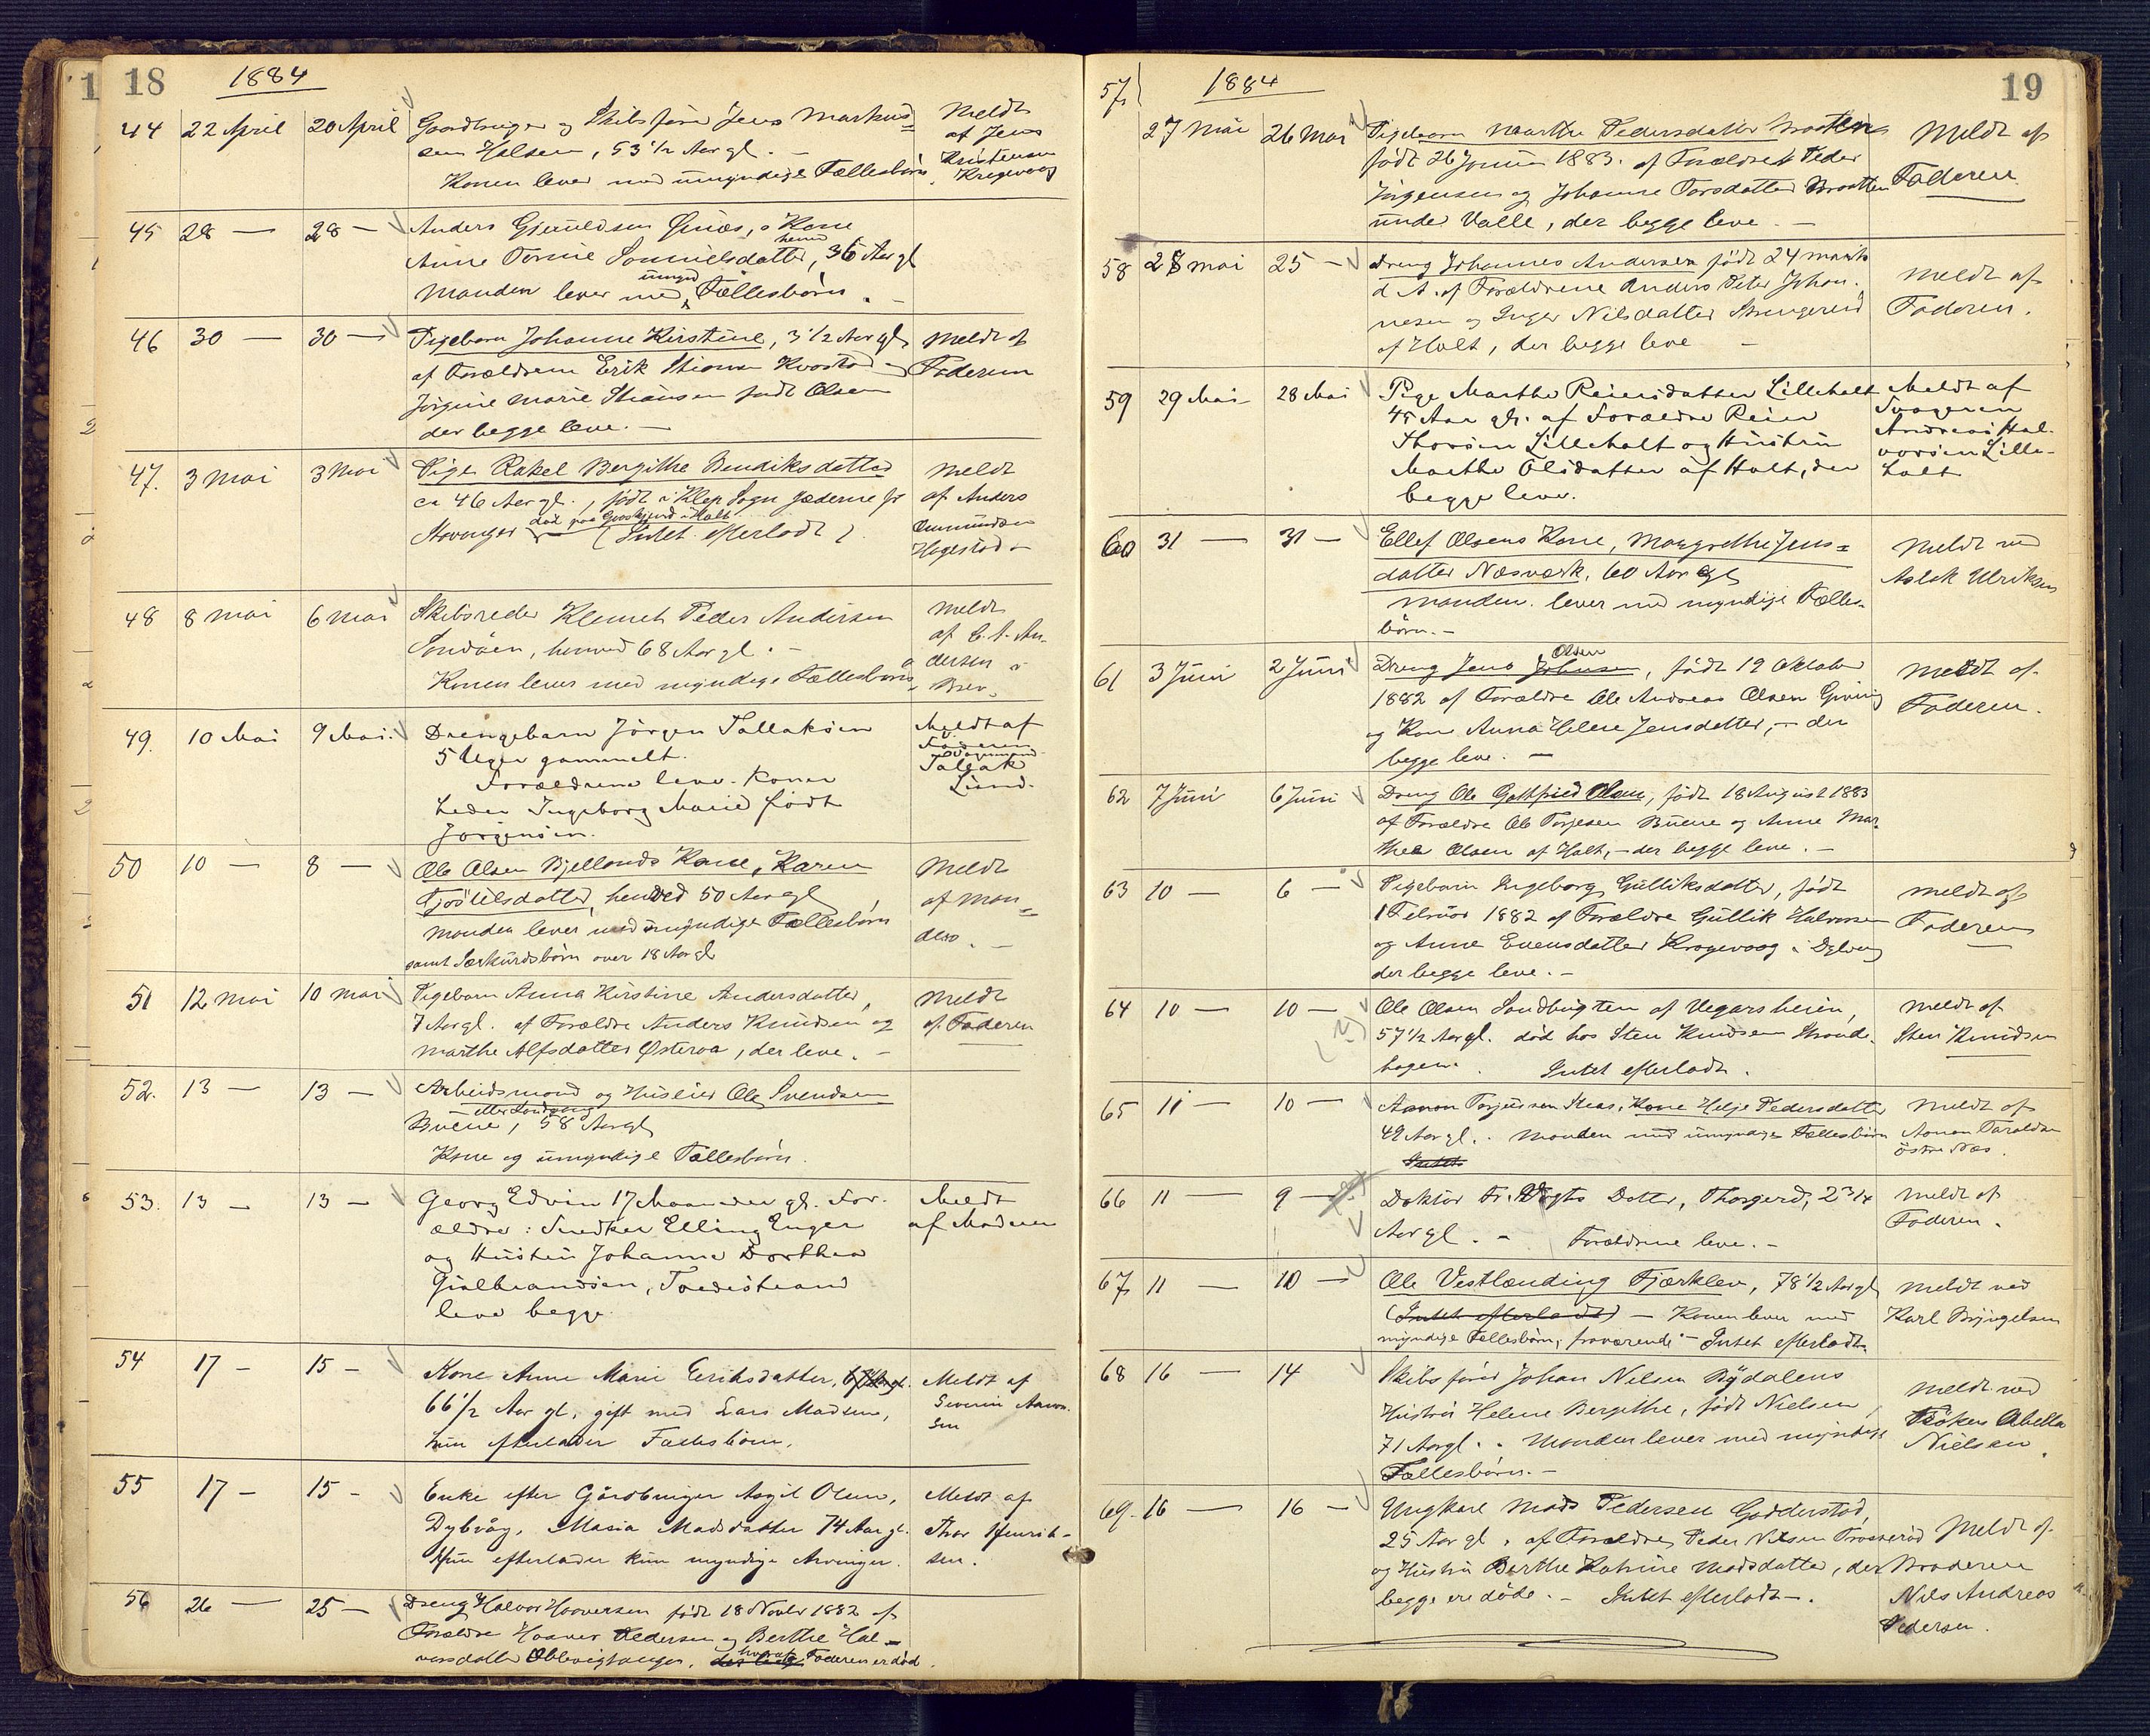 18 1884
44 22 April 20 April Gaardbruger og Skibsfører Jens Markus=
sen Holsen, 53 1/2 Aar gl. –
Konen lever med umyndige Fællesbørn
Meldt
af Jens
Kristensen
Krogevaag
45 28 — 28 — Anders Gjeruldsen Gnæs, s Kone
Anne Tomine Samuelsdatter, henved 36 Aar gl
Manden lever med umynd Fællesbørn. –
46 30 — 30 — Pigebarn Johanne Kirstine, 3 1/2 Aar gl,
af Forældrene Erik Stiansen Kvastad og
Jørgine Marie Stiansen født Olsen
der begge leve. —
Meldt af
Faderen
47. 3 Mai 3 Mai Pige Rakel Bergithe Bendiksdatter
ca 46 Aar gl., født i Klep Sogn Jæderne pr
Stavanger død paa Gooskjend i Holt (Intet efterladt)
Meldt
af Anders
Ommundsen
Hegestad –
48 8 Mai 6 Mai Skibsreder Klemet Peder Andersen
Sandøen, henved 68 Aar gl. –
Konen lever med myndige Fællesbørn
Meldt
af C. A. An-
dersen
Brev.
49. 10 Mai 9 Mai. Drengebarn Jørgen Tallaksen
5 Uger gammelt.
Forældrene leve. Konen
heder Ingeborg Marie født
Jørgensen.
Meldt af
Faderen
Tallak
Lund.
50 10 — 8 — Ole Olsen Bjellands Kone, Karen
Tjøstelsdatter, henved 50 Aar gl
Manden lever med umyndige Fællesbørn
samt Særkuldsbørn over 18 Aar gl
Meldt
af Man=
den. –
51 12 Mai 10 Mai Pigebarn Anna Kirstine Andersdatter,
7 Aar gl. af Forældre Anders Knudsen og
Marthe Alfsdatter Østeraa, der leve. –
Meldt
af Faderen
52. 13 — 13 — Arbeidsmand og Husleier Ole Svendsen
Buene, eller Sandgang 58 Aar gl
Kone og umyndige Fællesbørn.
53. 13 – 13 – Georg Edvin 17 Maaneder gl. For-
ældre: Snedker Elling Enger
og Hustru Johanne Dorthea
Gulbrandsen, Tvedestrand
leve begge.
Meldt
af Moderen
54 17 – 15 – Kone Anne Marie Eriksdatter,
66 1/2 Aar gl, gift med Lars Madsen,
hun efterlader Fællesbørn.
Meldt af
Severin Aanon-
sen
55 17 – 15 – Enke efter Gårdbruger Asgil Olsen,
Dybvåg, Maria Madsdatter 74 Aar gl.
Hun efterlader kun myndige Arvinger.
Meldt af
Thor Henrik-
sen.
56 26 — 25 — Dreng Halvor Haaversen født 18 Novbr 1882 af
Forældre Haaver Pedersen og Berthe Hal=
vorsdatter Oblevigtangen, hvoraf Faderen er død.
57, 1884 19
27 Mai 26 Mai Pigebarn Marthe Pedersdatter Braaten
født 26 Januar 1883. af Forældre Peder
Jørgensen og Johanne Torsdatter Braatten
under Valle, der begge leve. –
Meldt af
Faderen
58 28 Mai 25 — Dreng Johannes Andersen født 24 Marts
d A. af Forældrene Anders Peter Johan-
nesen og Inger Nilsdatter Strengereid
af Holt, der begge leve –
Meldt af
Faderen.
59 29 Mai – 28 Mai Pige Marthe Reiersdatter Lilleholt
45 Aar gl. af Forældre Reier
Thorsen Lilleholt og Hustru
Marthe Olsdatter af Holt, der
begge leve.
Meldt af
Svogeren
Andreas Hal-
vorsen Lille-
holt
60 31 — 31 — Ellef Olsens Kone, Margrethe Jens=
datter Næsværk, 60 Aar gl
Manden lever med myndige Fælles-
børn. –
Meldt ved
Aslak Ulriksen
61 3 Juni 2 Juni Dreng Jens Johnsen Olsen, født 19 Oktober
1882 af Forældre Ole Andreas Olsen Gjving
og Kone Anna Helene Jensdatter, – der
begge leve. —
Meldt af
Faderen.
62 7 Juni 6 Juni Dreng Ole Gotfried Olsen, født 18 August 1883
af Forældre Ole Torjesen Buene og Anne Mar-
thea Olsen af Holt, – der begge leve. –
63 10 — 6 — Pigebarn Ingeborg Gulliksdatter, født
1 Februar 1882 af Forældre Gullik Halvorsen
og Anne Evensdatter Krogevaag i Dybvaag
der begge leve. –
Meldt af
Faderen
64 10 — 10 — Ole Olsen Sandbugten af Vegarsheien,
57 1/2 Aar gl. død hos Sten Knudsen Strande-
hagen. Intet efterladt.
Meldt af
Sten Knudsen
65 11 — 10 — Aanon Torjussen Næs, Kone Helje Pedersdatter
49 Aar gl. . Manden med umyndige Fællesbørn
Intet
Meldt af
Aanon Taraldsen
østre Næs.
66 11 — 9 — Doktor Fr. Vogts Datter, Thorgerd, 2 3/4
Aar gl. – Forældrene leve. –
Meldt af
Faderen.
67, 11 — 10 — Ole Vestlænding Fjærkleiv, 78 1/2 Aar gl
(Intet efterladt) – Konen lever med
myndige Fællesbørn, fraværende – Intet efterladt.
Meldt ved
Karl Bryngelsen
68 16 — 14 Skibsfører Johan Nilsen Bydalens
Hustru Helene Bergithe, født Nielsen,
71 Aar gl. . Manden lever med myndige
Fællesbørn. –
Meldt ved
Frøken Abella
Nielsen.
69. 16 — 16 — Ungkarl Mads Pedersen Godderstad,
25 Aar gl. af Forældre Peder Nilsen Trosserød
og Hustru Berthe Katrine Madsdatter, der
begge ere døde. – Intet efterladt –.
Meldt af
Broderen
Nils Andreas
Pedersen.